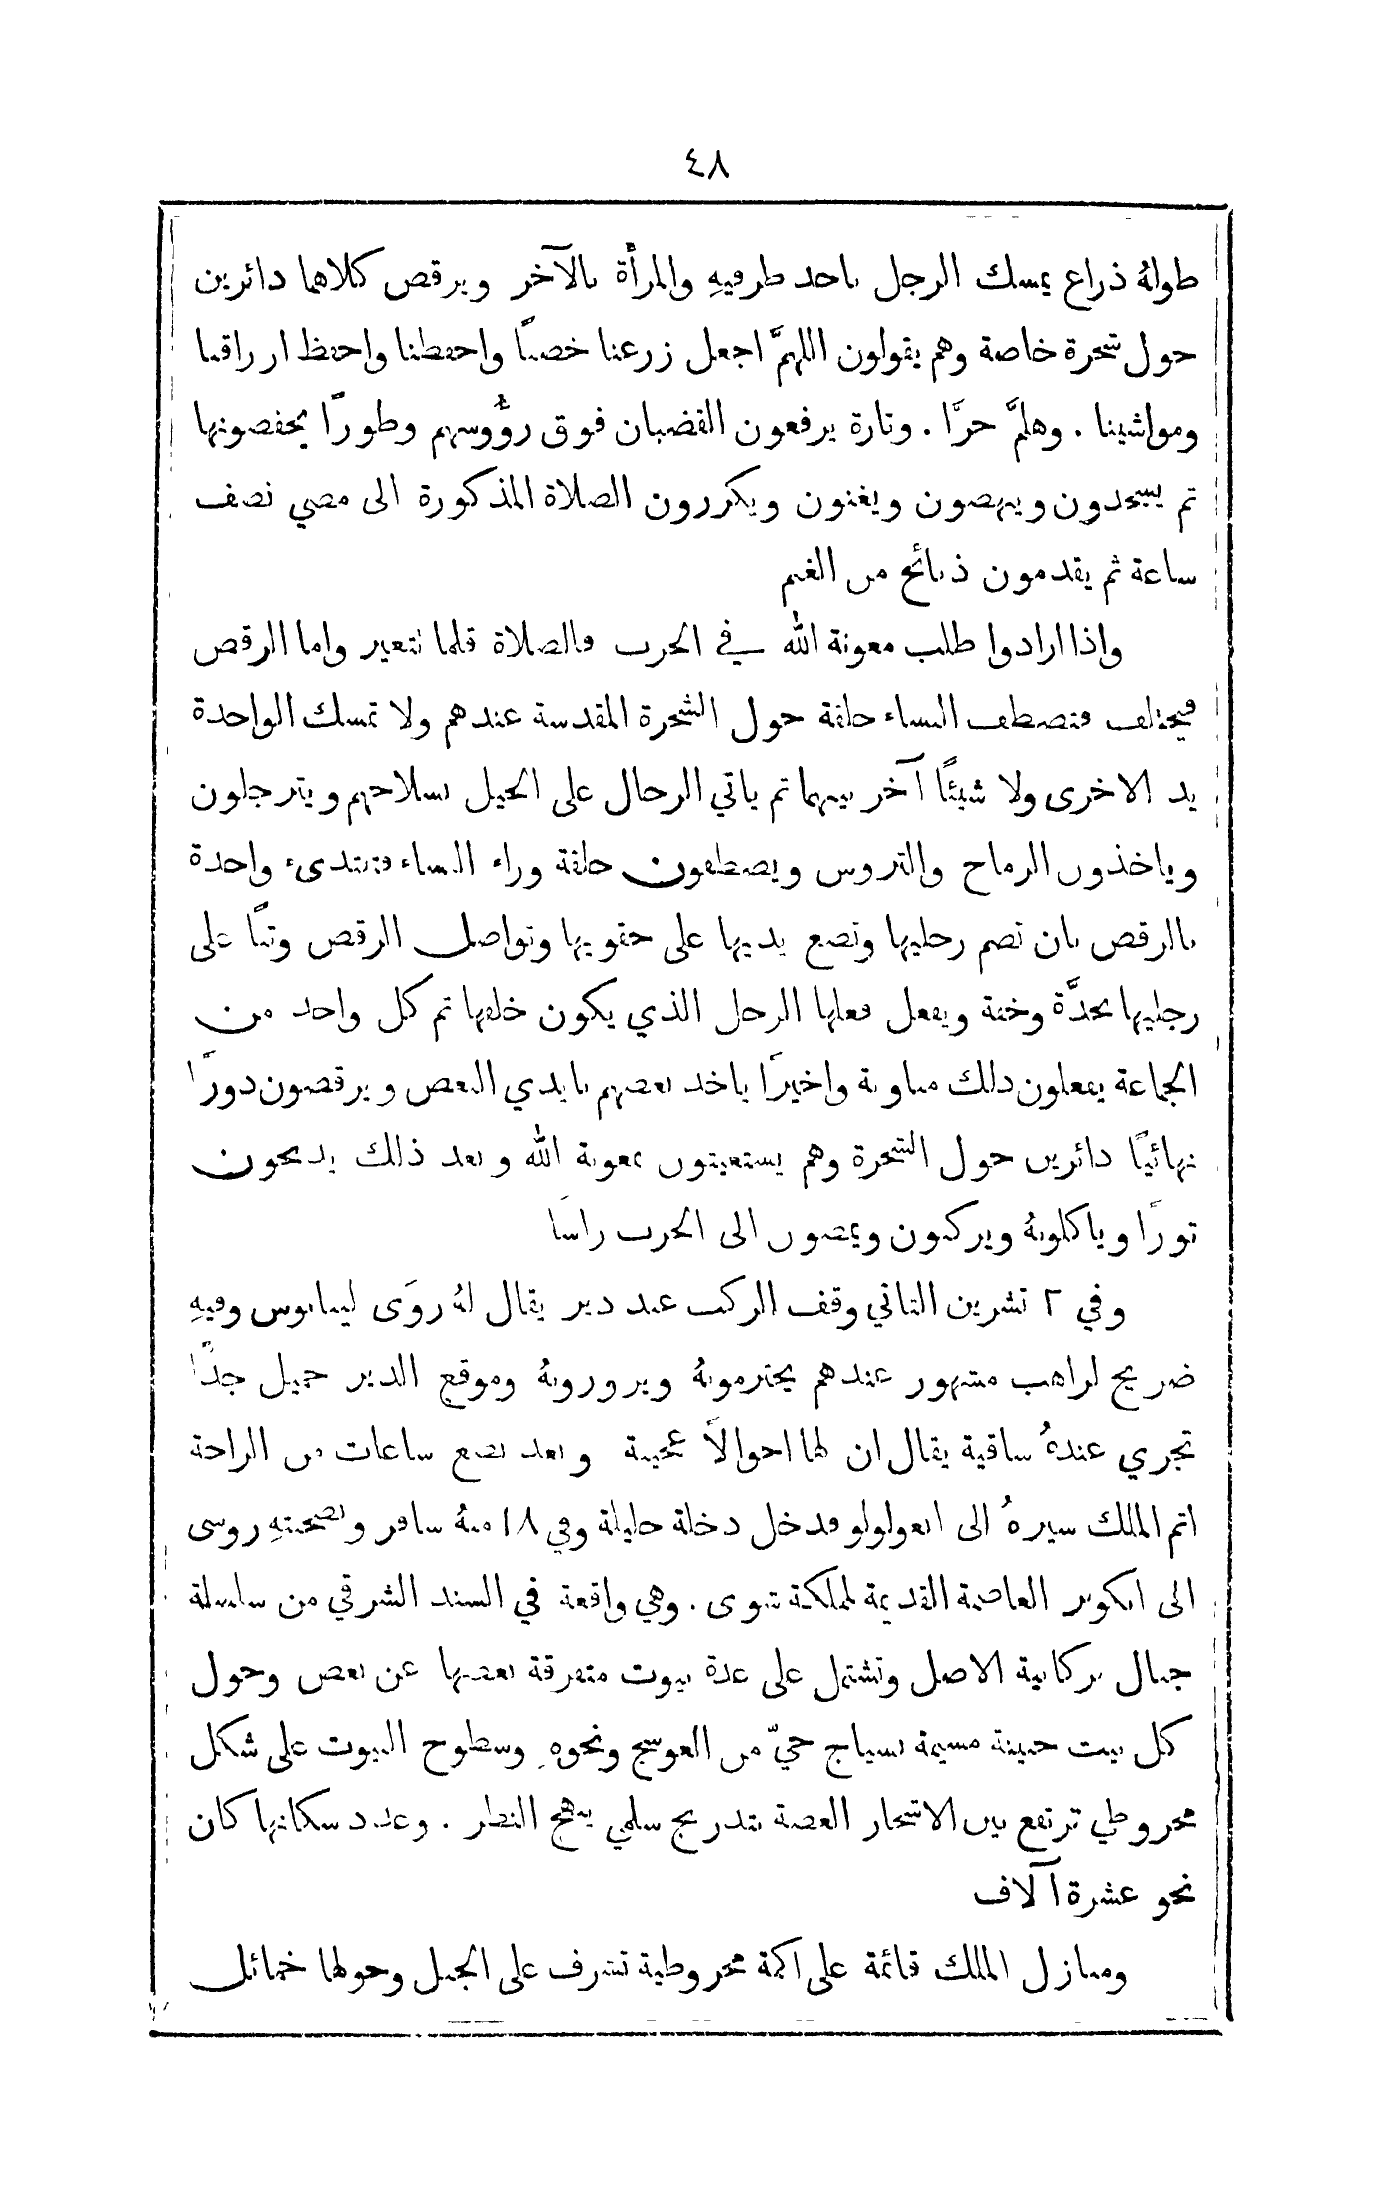 ٤٨
طولهُ ذراع يمسك الرجل باحد طرفيهِ والمرأة بالآخر ويرقص كلاهما دائرين
حول شجرة خاصة وهم يقولون اللهمَّ اجعل زرعنا خصبًا واحفظنا واحفظ ارزاقنا
ومواشينا . وهلمَّ جرَّا . وتارة يرفعون القضبان فوق رؤُوسهم وطورًا يخفضونها
ثم يسجدون وينهضون ويغنون ويكررون الصلاة المذكورة الى مضي نصف
ساعة ثم يقدمون ذبائح من الغنم
واذا ارادوا طلب معونة الله في الحرب فالصلاة قلما تتغير واما الرقص
فيختلف فتصطف النساء حلقة حول الشجرة المقدسة عندهم ولا تمسك الواحدة
يد الاخرى ولا شيئًا آخر بينهما ثم ياتي الرجال على الخيل بسلاحهم ويترجلون
وياخذون الرماح والتروس ويصطفون حلقة وراء النساء فتبتدىء واحدة
بالرقص بان تضم رجليها وتضع يديها على حقويها وتواصل الرقص وثبًا على
رجليها بحدَّة وخفة ويفعل فعلها الرجل الذي يكون خلفها ثم كل واحد من
الجماعة يفعلون ذلك مناوبة واخيرًا ياخذ بعضهم بايدي البعض ويرقصون دورًا
نهائيًا دائرين حول الشجرة وهم يستغيثون بمعونة الله وبعد ذلك يذبحون
ثورًا وياكلونهُ ويركبون ويمضون الى الحرب راسًا
وفي ٢ تشرين الثاني وقف الركب عند دير يقال لهُ روَى ليبانوس وفيهِ
ضريح لراهب مشهور عندهم يحترمونهُ ويزورونهُ وموقع الدير جميل جدًّا
تجري عندهُ ساقية يقال ان لها احوالاً عجيبة وبعد بضع ساعات من الراحة
اتم الملك سيرهُ الى انغولولو فدخل دخلة جليلة وفي ١٨ منهُ سافر وبصحبتهِ روسى
الى انكوبر العاصمة القديمة لمملكة شوى . وهي واقعة في السند الشرقي من سلسلة
جبال بركانية الاصل وتشتمل على عدة بيوت متفرقة بعضها عن بعض وحول
كل بيت جنينة مسيجة بسياج حيّ من العوسج ونحوهِ وسطوح البيوت على شكل
مخروطي ترتفع بين الاشجار الغضة بتدريج سلمي يبهج النظر . وعدد سكانها كان
نحو عشرة آلاف
ومنازل الملك قائمة على اكمة مخروطية تشرف على الجبل وحولها خمائل